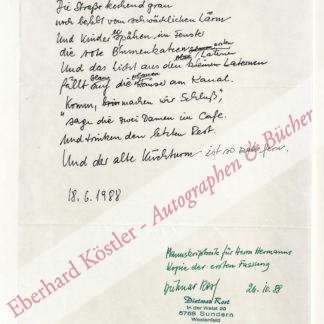 Die Straße kochend grau
noch belebt vom schwächlichen Lärm
Und Kinder spähen in Fenster
die rote Blumenkatzen
Und das Licht aus den kleinen Laternen
fällt auf die Häuser am Kanal.
"Komm, machen wir Schluß",
sagen die zwei Damen im Café.
Und trinken den letzten Rest.
Und der alte Kirchturm ist so fern.
18.6.1988
Eberhard Köstler - Autographen & Bücher
Manuskriptseite für Herrn Hermanns
Kopie der ersten Fassung
Dietmar Rost 26.10.88
Dietmar Rost
In der Weist 20
5768 Sundern
Westenfeld